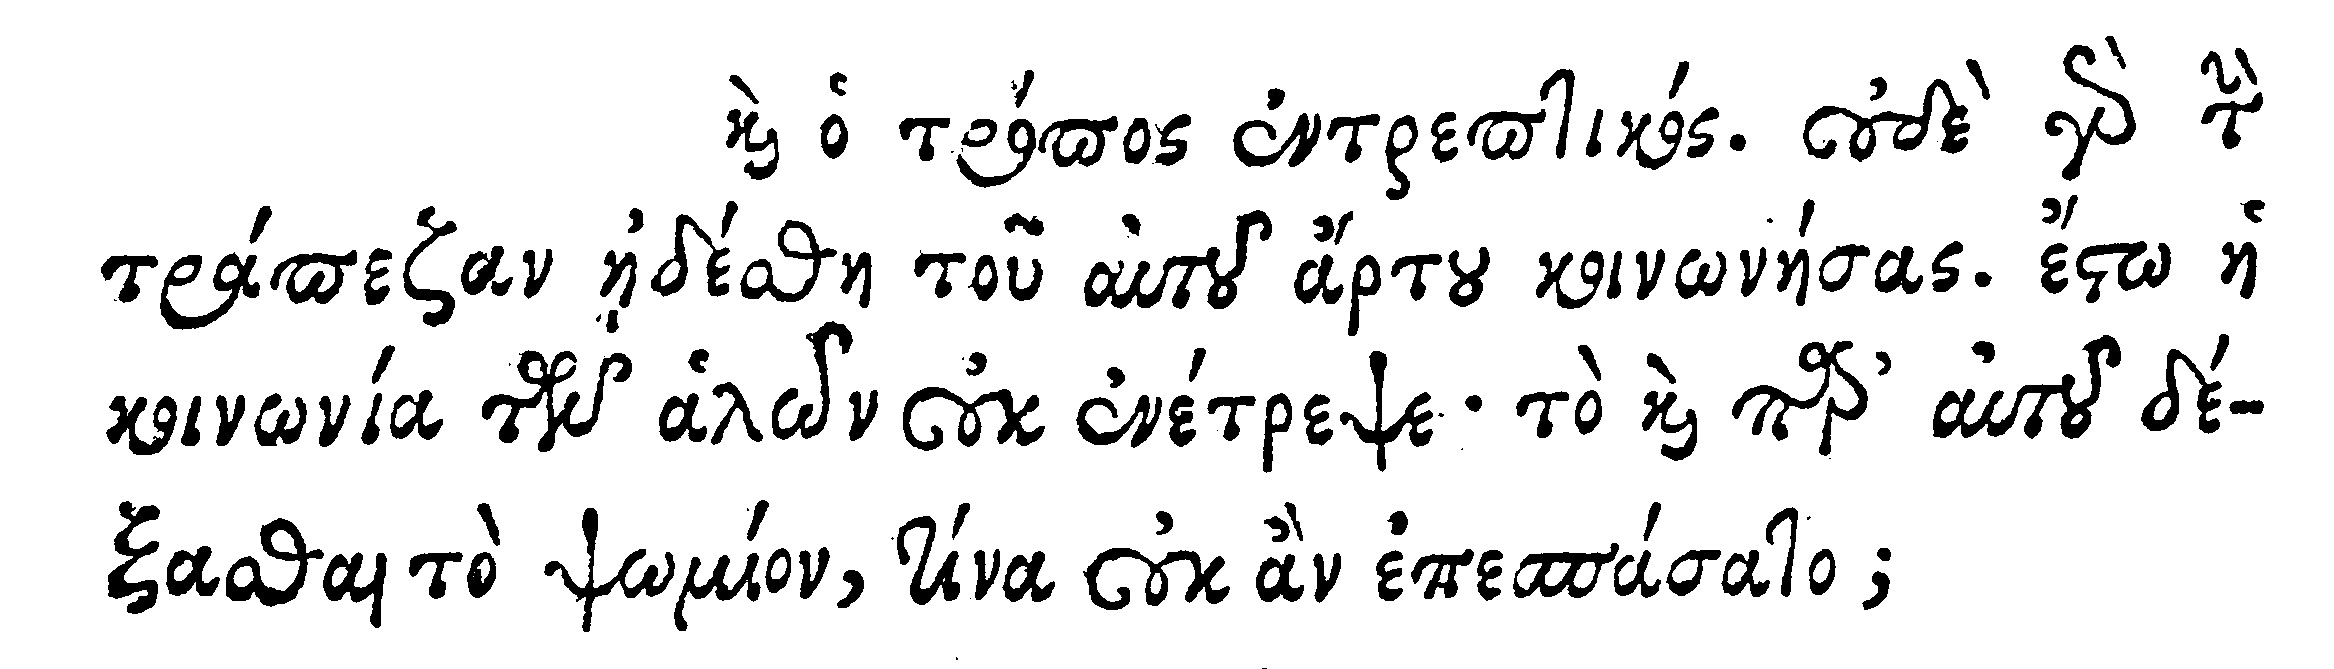 καὶ ὁ τρόπος ἐντρεπτικός. οὐδὲ γὰρ τὴν
τράπεζαν ᾐδέσθη τοῦ αὐτοῦ ἄρτου κοινωνήσας. ἔστω ἡ
κοινωνία τῶν ἁλῶν οὐκ ἐνέτρεψε· τὸ καὶ παρ’ αὐτοῦ δέ-
ξασθαι τὸ ψωμίον, τίνα οὐκ ἂν ἐπεσπάσατο;